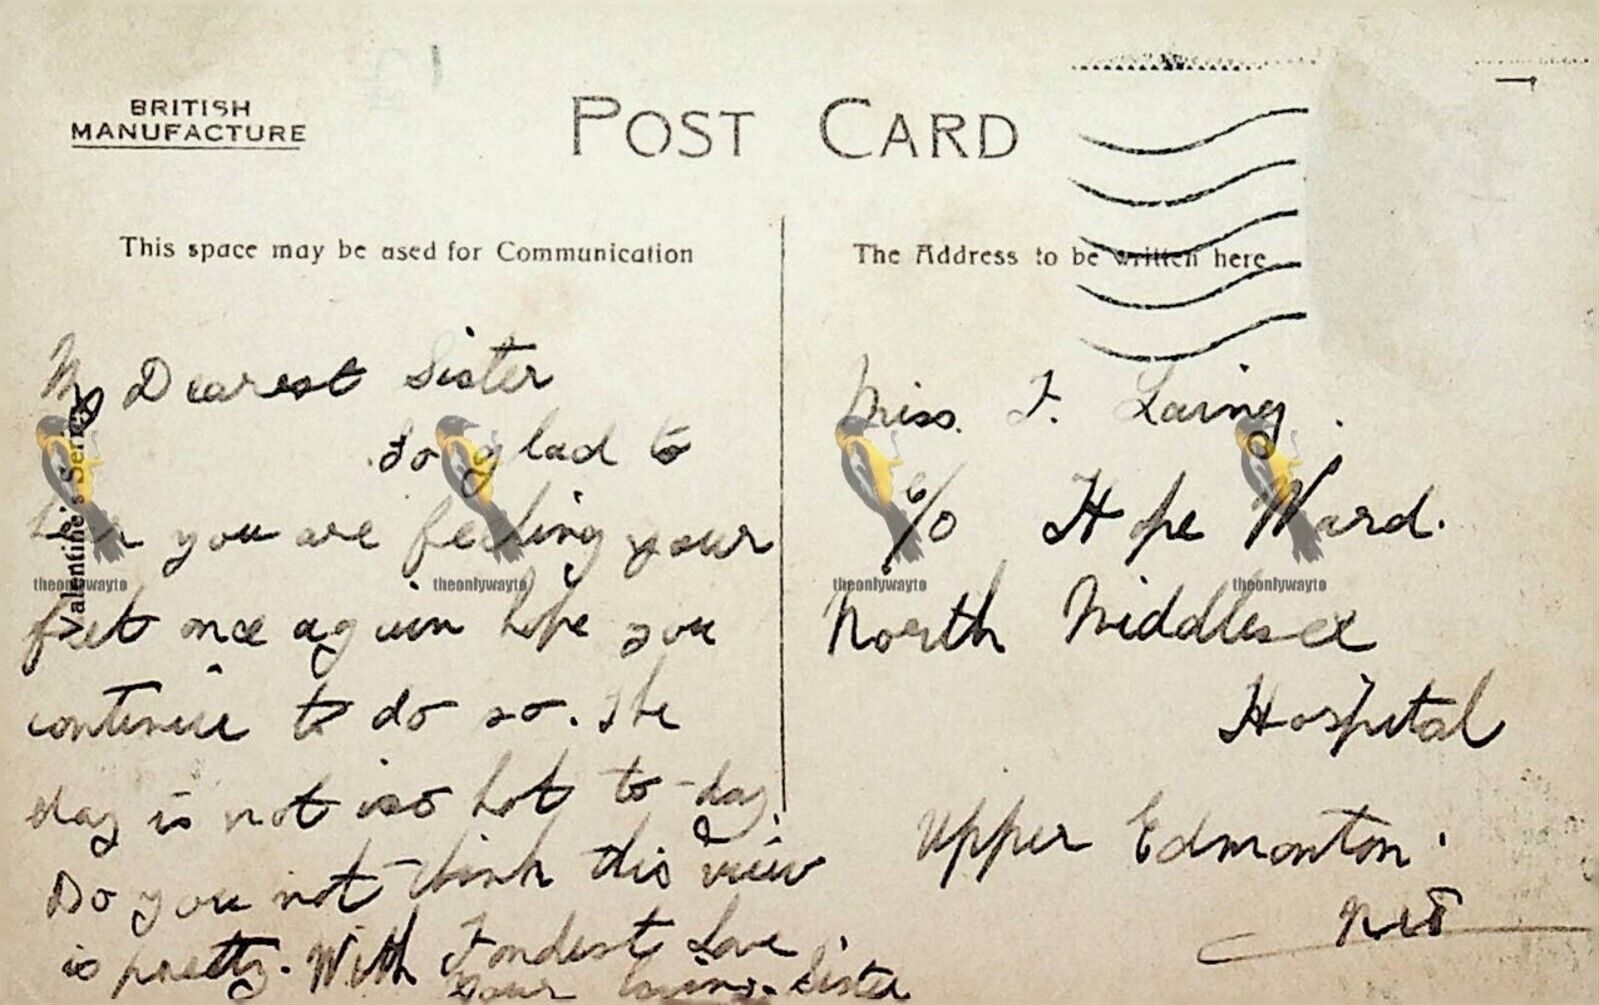 BRITISH
MANUFACTURE
POST CARD
This space may be used for Communication
The Address to be written here
My Dearest Sister
So glad to
hear you are feeling your
feet once again hope you
continue to do so. The
day is not so hot to-day.
Do you not think this view
is pretty. With Fondest Love
your loving Sister
Valentine's Series
Miss. F. Laing.
c/o Hope Ward.
North Middlesex
Hospital
Upper Edmonton.
theonlywayto
theonlywayto
theonlywayto
theonlywayto